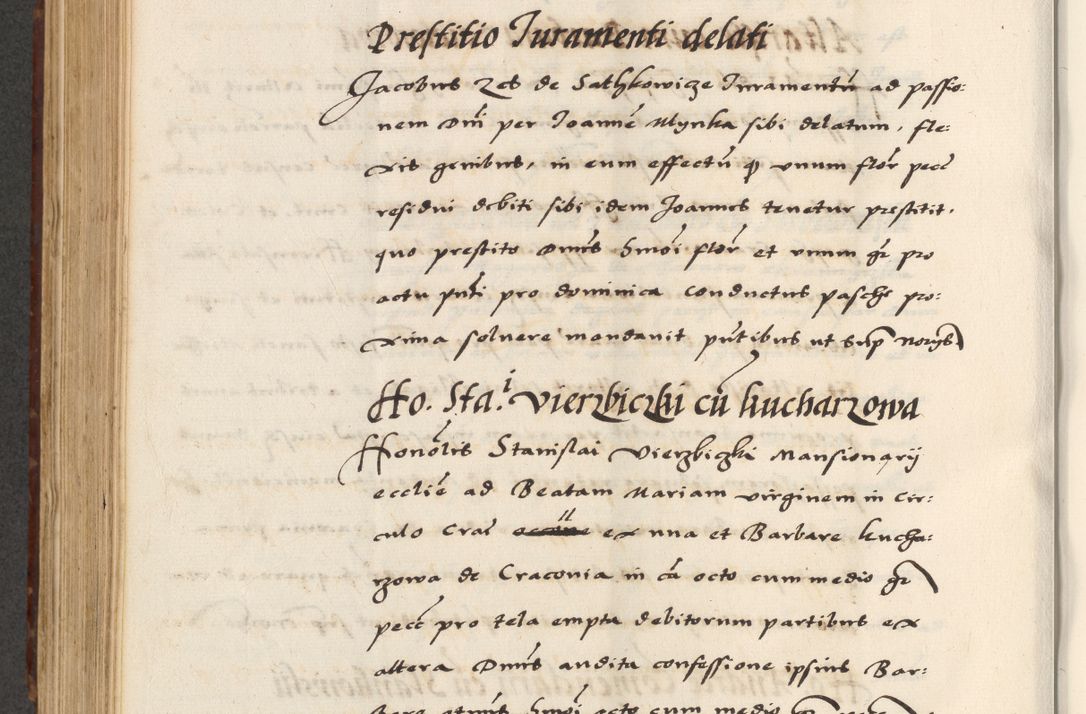 Prestitio Juramenti delati
Jacobus Zes de Sathkowicze Juramentũ ad passio:
nem Dnĩ per Joannẽ Mynka sibi delatum, fle:
xis genibus, in eum effectũ ꝙ unum florẽ pecẽ
residui debiti sibi idem Joannes tenetur prestitit,
quo prestito Dnus hmõi florẽ et unum gr̃ pro
actu pñti pro dominica conductus pasche pro:
xima solvere mandavit pñtibus ut sup̃ notrijs
Ho. Sta.i Vierzbiczki cũ kucharzowa
Honõlis Stanislai Vierzbiczki Mansionarij
eccliẽ ad Beatam Mariam virginem in Cir:
culo Crac̃ ex una et Barbare kucha:
rzowa de Craconia in cã octo cum medio gr̃
pecc̃ pro tela empta debitorum partibus ex
altera Dnus audita confessione ipsius Bar:
bare hmõi octo cum medio